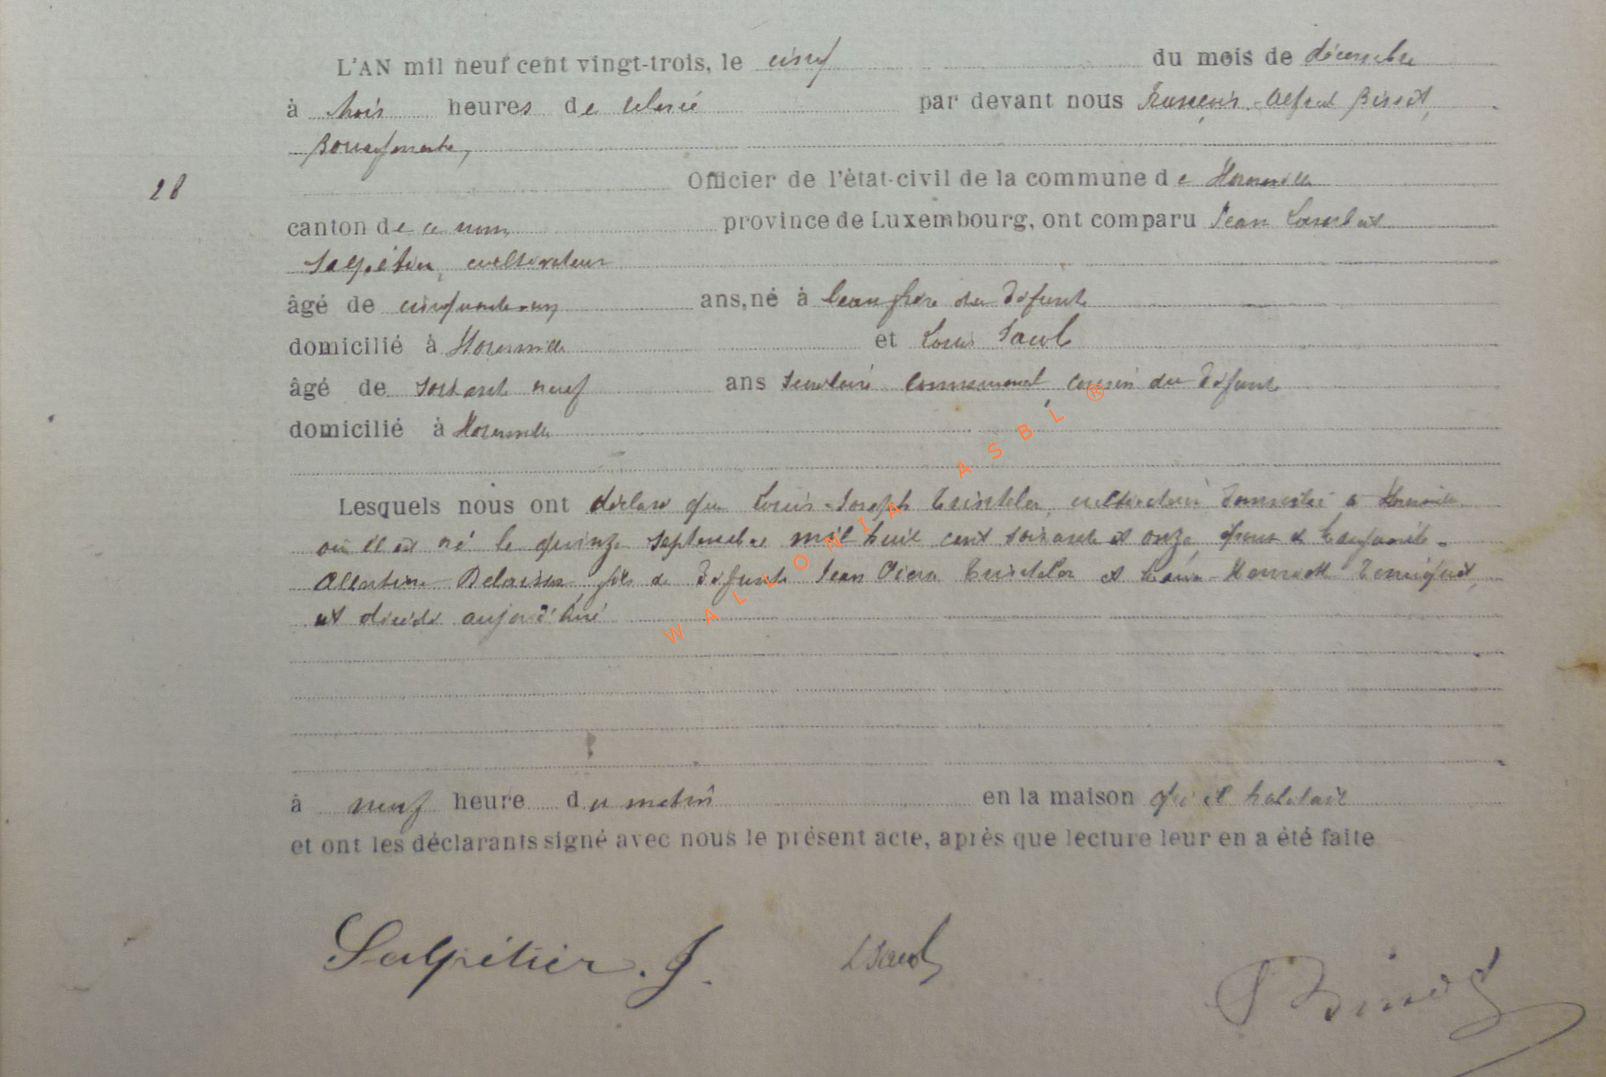 L'AN mil neuf cent vingt-trois, le cinq du mois de décembre
à trois heures de relevée par devant nous François-Alfred Binsot,
Bourgmestre,
28 Officier de l'état-civil de la commune de
canton de ce nom province de Luxembourg, ont comparu Jean Lambert
Salpétier, cultivateur
âgé de cinquante-un ans, né à beau frère du défunt
domicilié à et Louis Jacob
âgé de soixante neuf ans secrétaire communal, cousin du défunt
domicilié à
Lesquels nous ont déclaré que Louis-Joseph cultivateur domicilié à
où il est né le quinze septembre mil huit cent soixante et onze, époux de
fils de défunts Jean Pierre et
est décédé aujourd'hui
à neuf heure du matin en la maison qu'il habitait
et ont les déclarants signé avec nous le présent acte, après que lecture leur en a été faite
Salpétier. J. LJacob
WALLONIA ASBL ®